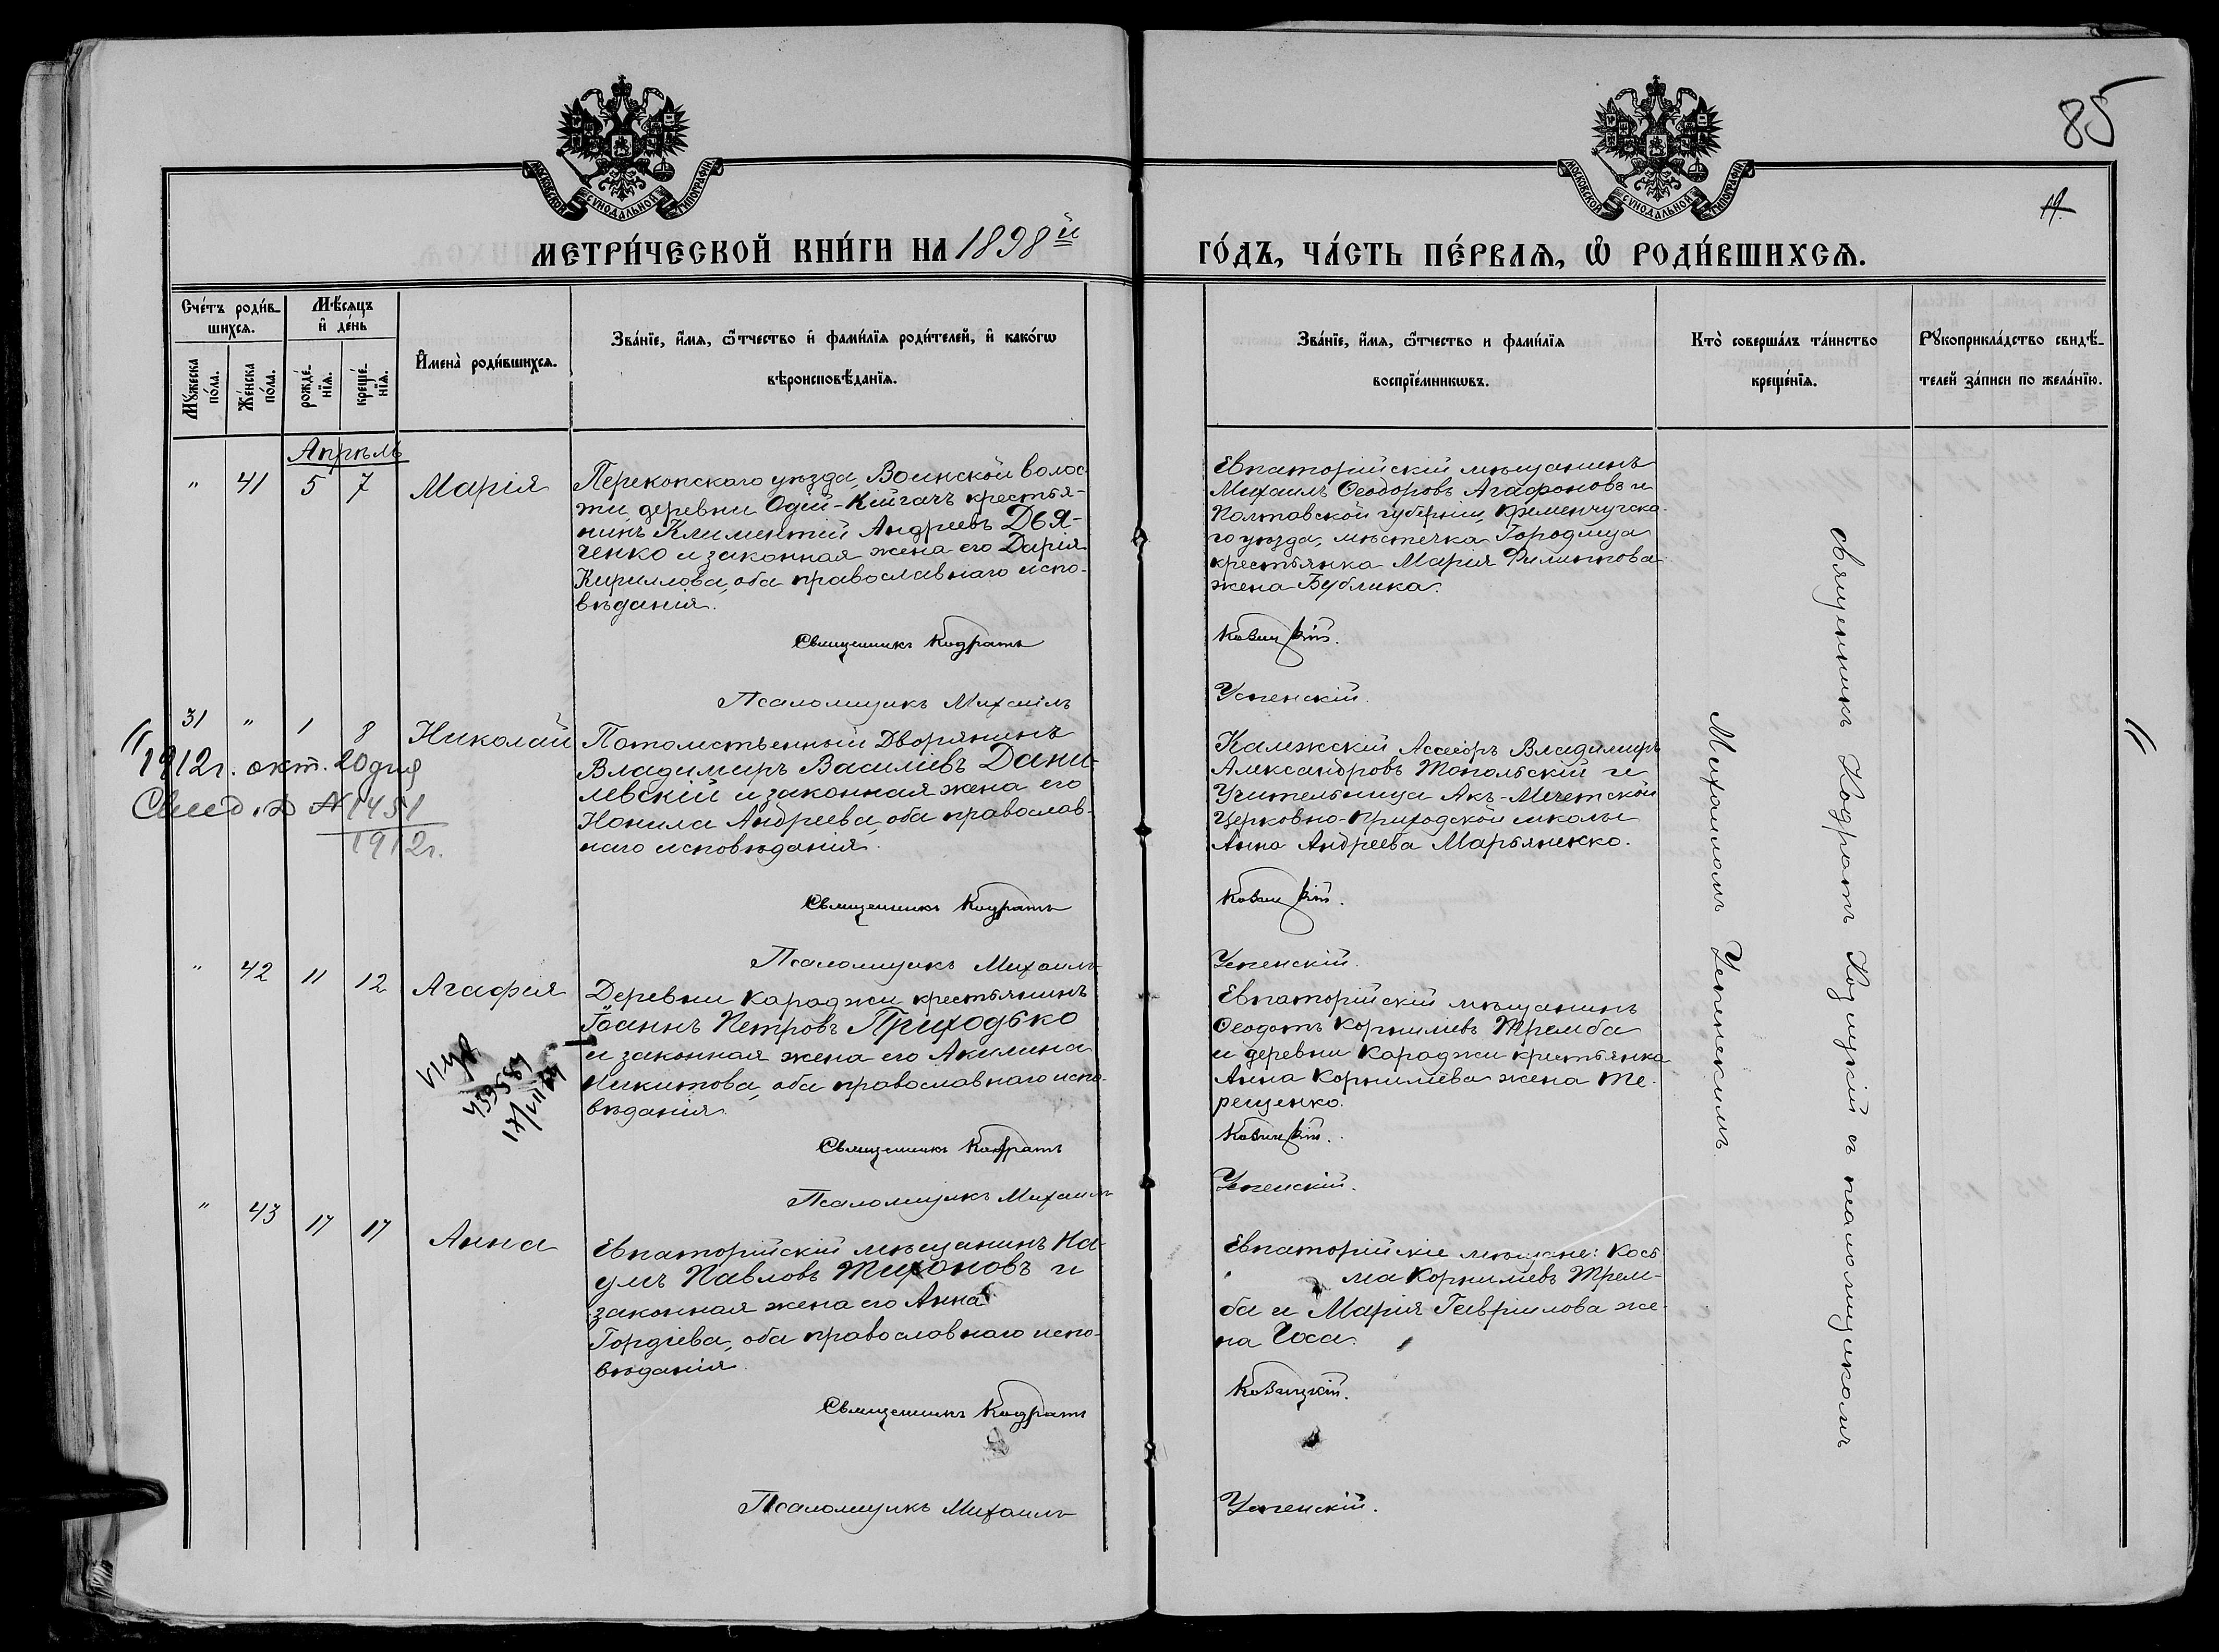 85
19.
МОСКОВСКОЙ СѴНОДАЛЬНОЙ ТИПОГРАФІИ
МОСКОВСКОЙ СѴНОДАЛЬНОЙ ТИПОГРАФІИ
МЕТРИ́ЧЕСКОЙ КНИ́ГИ НА 1898й
ГО́ДЪ, ЧА́СТЬ ПЕ́РВАѦ, Ѡ҆ РОДИ́ВШИХСѦ.
Сче́тъ роди́в-
шихсѧ.
Мꙋ́жеска по́ла.
Же́нска по́ла.
Мѣ́сѧцъ
и҆ де́нь
рожде́-
нїѧ.
креще́-
нїѧ.
И҆мена̀ роди́вшихсѧ.
Зва́нїе, и҆́мѧ, ѻ҆́тчество и҆ фами́лїѧ роди́телей, и҆ како́гѡ
вѣроисповѣ́данїѧ.
Зва́нїе, и҆́мѧ, ѻ҆́тчество и фами́лїѧ
воспрїе́мникѡвъ.
Кто̀ соверша́лъ та́инство
креще́нїѧ.
Рꙋкоприкла́дство свидѣ́-
телей за́писи по жела́нїю.
Апрѣль
" 41 5 7 Марія
Перекопскаго уѣзда, Воинской волос-
ти деревни Одей-Кийгачъ крестья-
нинъ Климентій Андреевъ Дья-
ченко и законная жена его Дарія
Кириллова, оба православнаго испо-
вѣданія.
Священникъ Кодратъ
Псаломщикъ Михаилъ
Евпаторійскій мѣщанинъ
Михаилъ Ѳеодоровъ Агафоновъ и
Полтавской губерніи, Кременчугска-
го уѣзда, мѣстечка Городища
крестьянка Марія Филиппова
жена Бублика.
Козицкій.
Успенскій.
31 " 1 8 Николай
Потомственный Дворянинъ
Владимиръ Василіевъ Дани-
левскій и законная жена его
Нонила Андреева, оба православ-
наго исповѣданія.
Священникъ Кодратъ
Псаломщикъ Михаилъ
1912г. окт. 20 дня
№ 1451
1912г.
Ассесоръ Владимиръ
Александровъ Топольскій и
Учительница Акъ-Мечетской
Церковно-приходской школы
Анна Андреева Марьяненко.
Козицкій.
Успенскій.
" 42 11 12 Агафія
Деревни Караджи крестьянинъ
Іоаннъ Петровъ Приходько
и законная жена его Акилина
Никитова, оба православнаго испо-
вѣданія.
Священникъ Кодратъ
Псаломщикъ Михаилъ
Евпаторійскій мѣщанинъ
Ѳеодотъ Корниліевъ Тремба
и деревни Караджи крестьянка
Анна Корниліева жена Те-
рещенко.
Козицкій.
Успенскій.
" 43 17 17 Анна
Евпаторійскій мѣщанинъ На-
умъ Павловъ Тихоновъ и
законная жена его Анна
Гордіева, оба православнаго испо-
вѣданія.
Священникъ Кодратъ
Псаломщикъ Михаилъ
Евпаторійскіе мѣщане: Кось-
ма Корниліевъ Трем-
ба и Марія Гавріилова же-
на Чоса.
Козицкій.
Успенскій.
священникъ Кодратъ Козицкій съ псаломщикомъ
Михаиломъ Успенскимъ.